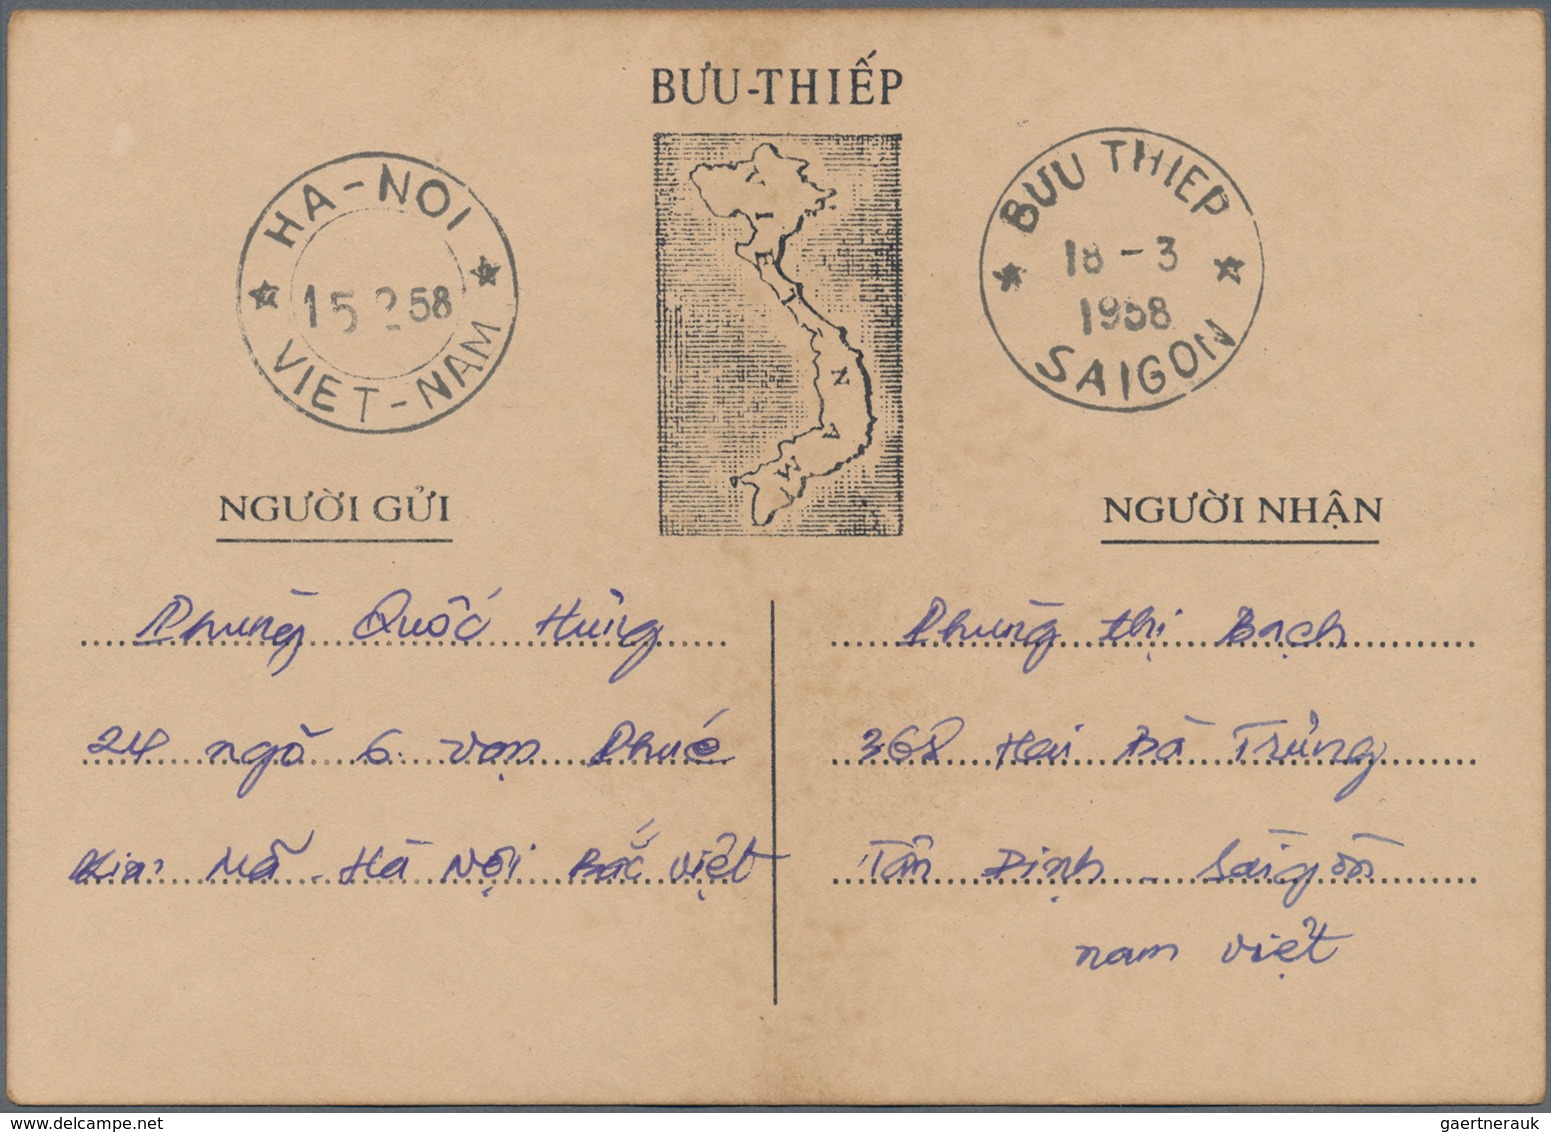 BƯU-THIẾP
HA-NOI
15.2.58
VIET-NAM
VIETNAM
BUU THIEP
18-3
1958
SAIGON
NGƯỜI GỬI
Phùng Quốc Hùng
24 ngõ 6. vạn Phúc
Kim Mã - Hà Nội Bắc việt
NGƯỜI NHẬN
Phùng thị Bạch
368 Hai Bà Trưng
Tân Định - Sàigòn
nam việt
gaertnerauk